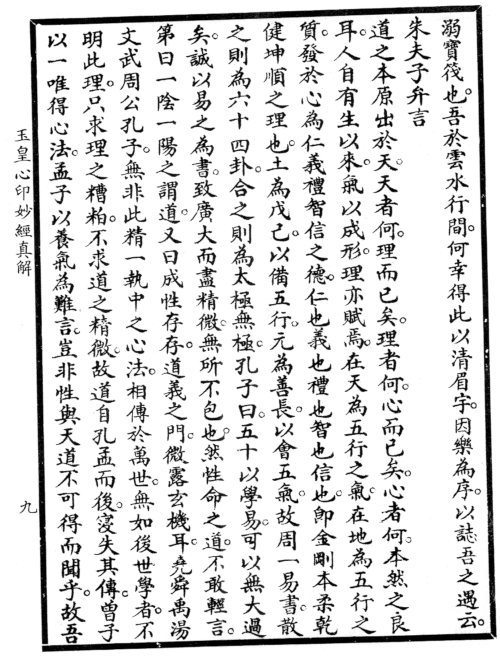 溺寶筏也。吾於雲水行間。何幸得此以清眉宇。因樂為序。以誌吾之遇云。
朱夫子弁言
道之本原出於天。天者何。理而已矣。理者何。心而已矣。心者何。本然之良
耳。人自有生以來。氣以成形。理亦賦焉。在天為五行之氣。在地為五行之
質。發於心為仁義禮智信之德。仁也義也禮也智也信也。即金剛木柔乾
健坤順之理也。土為戊己。以備五行。元為善長。以會五氣。故周一易書。散
之則為六十四卦。合之則為太極無極。孔子曰。五十以學易。可以無大過
矣。誠以易之為書。致廣大而盡精微。無所不包也。然性命之道。不敢輕言。
第曰一陰一陽之謂道。又曰成性存存。道義之門。微露玄機耳。堯舜禹湯
文武周公孔子。無非此精一執中之心法。相傳於萬世。無如後世學者。不
明此理。只求理之糟粕。不求道之精微。故道自孔孟而後。寖失其傳。曾子
以一唯得心法。孟子以養氣為難言。豈非性與天道不可得而聞乎。故吾
玉皇心印妙經真解
九